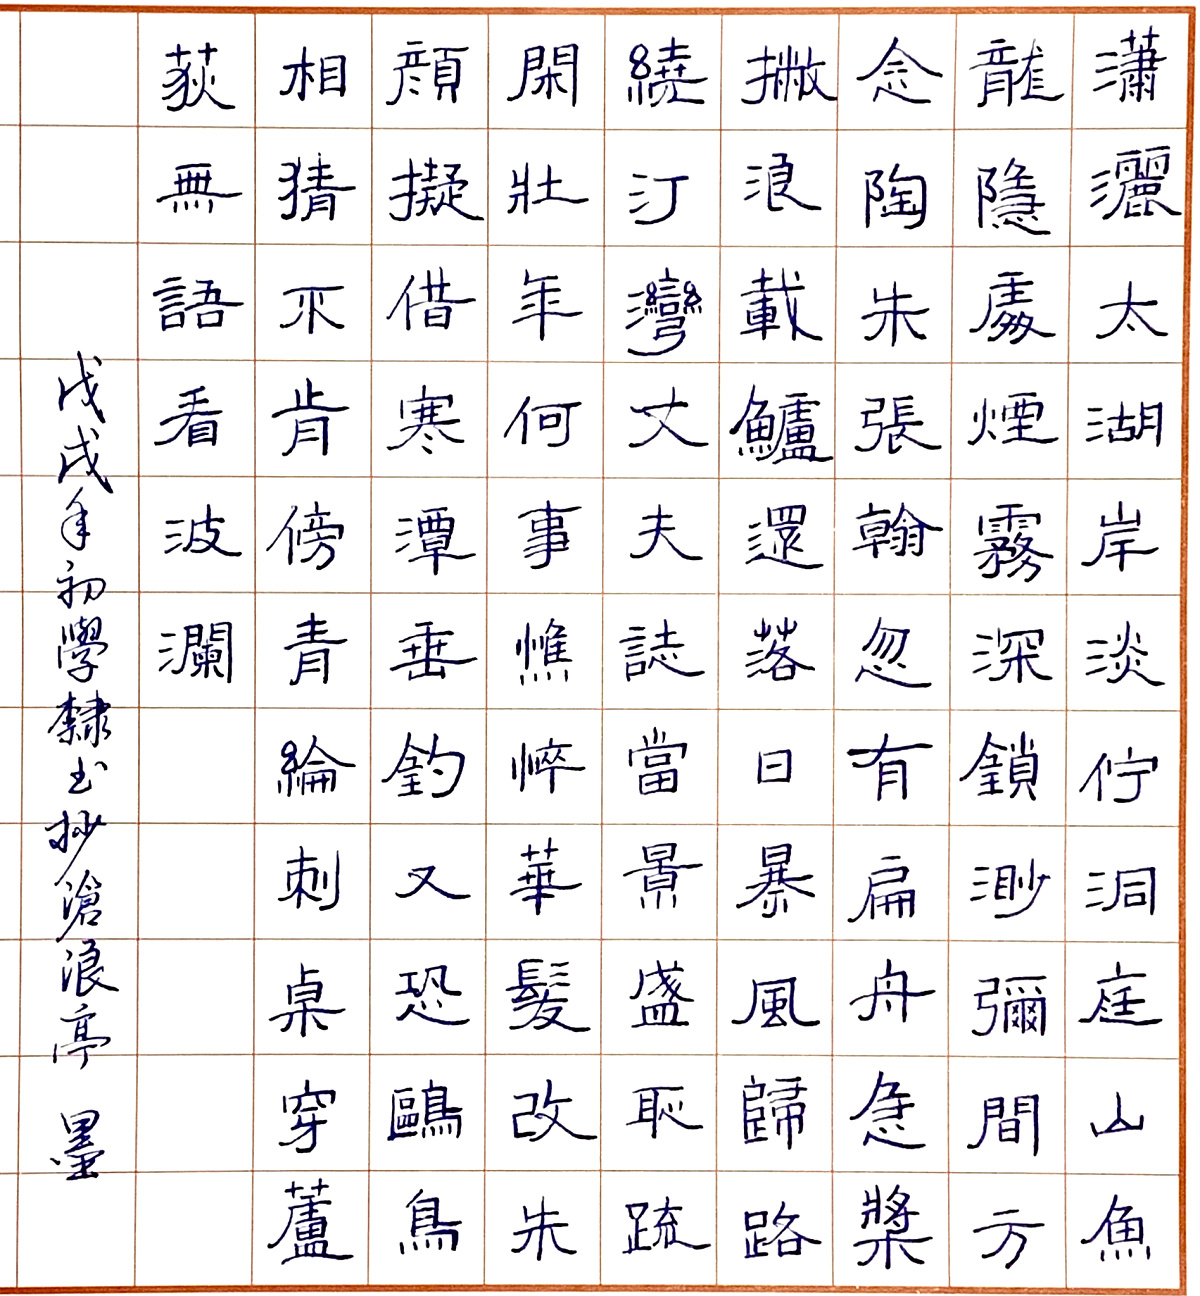 瀟灑太湖岸淡佇洞庭山魚
龍隱處煙霧深鎖渺彌間方
念陶朱張翰忽有扁舟急槳
撇浪載鱸還落日暴風歸路
繞汀灣丈夫誌當景盛恥疏
閑壯年何事憔悴華髮改朱
顏擬借寒潭垂釣又恐鷗鳥
相猜不肯傍青綸刺桌穿蘆
荻無語看波瀾
戊戌年初學隸书抄滄浪亭 墨